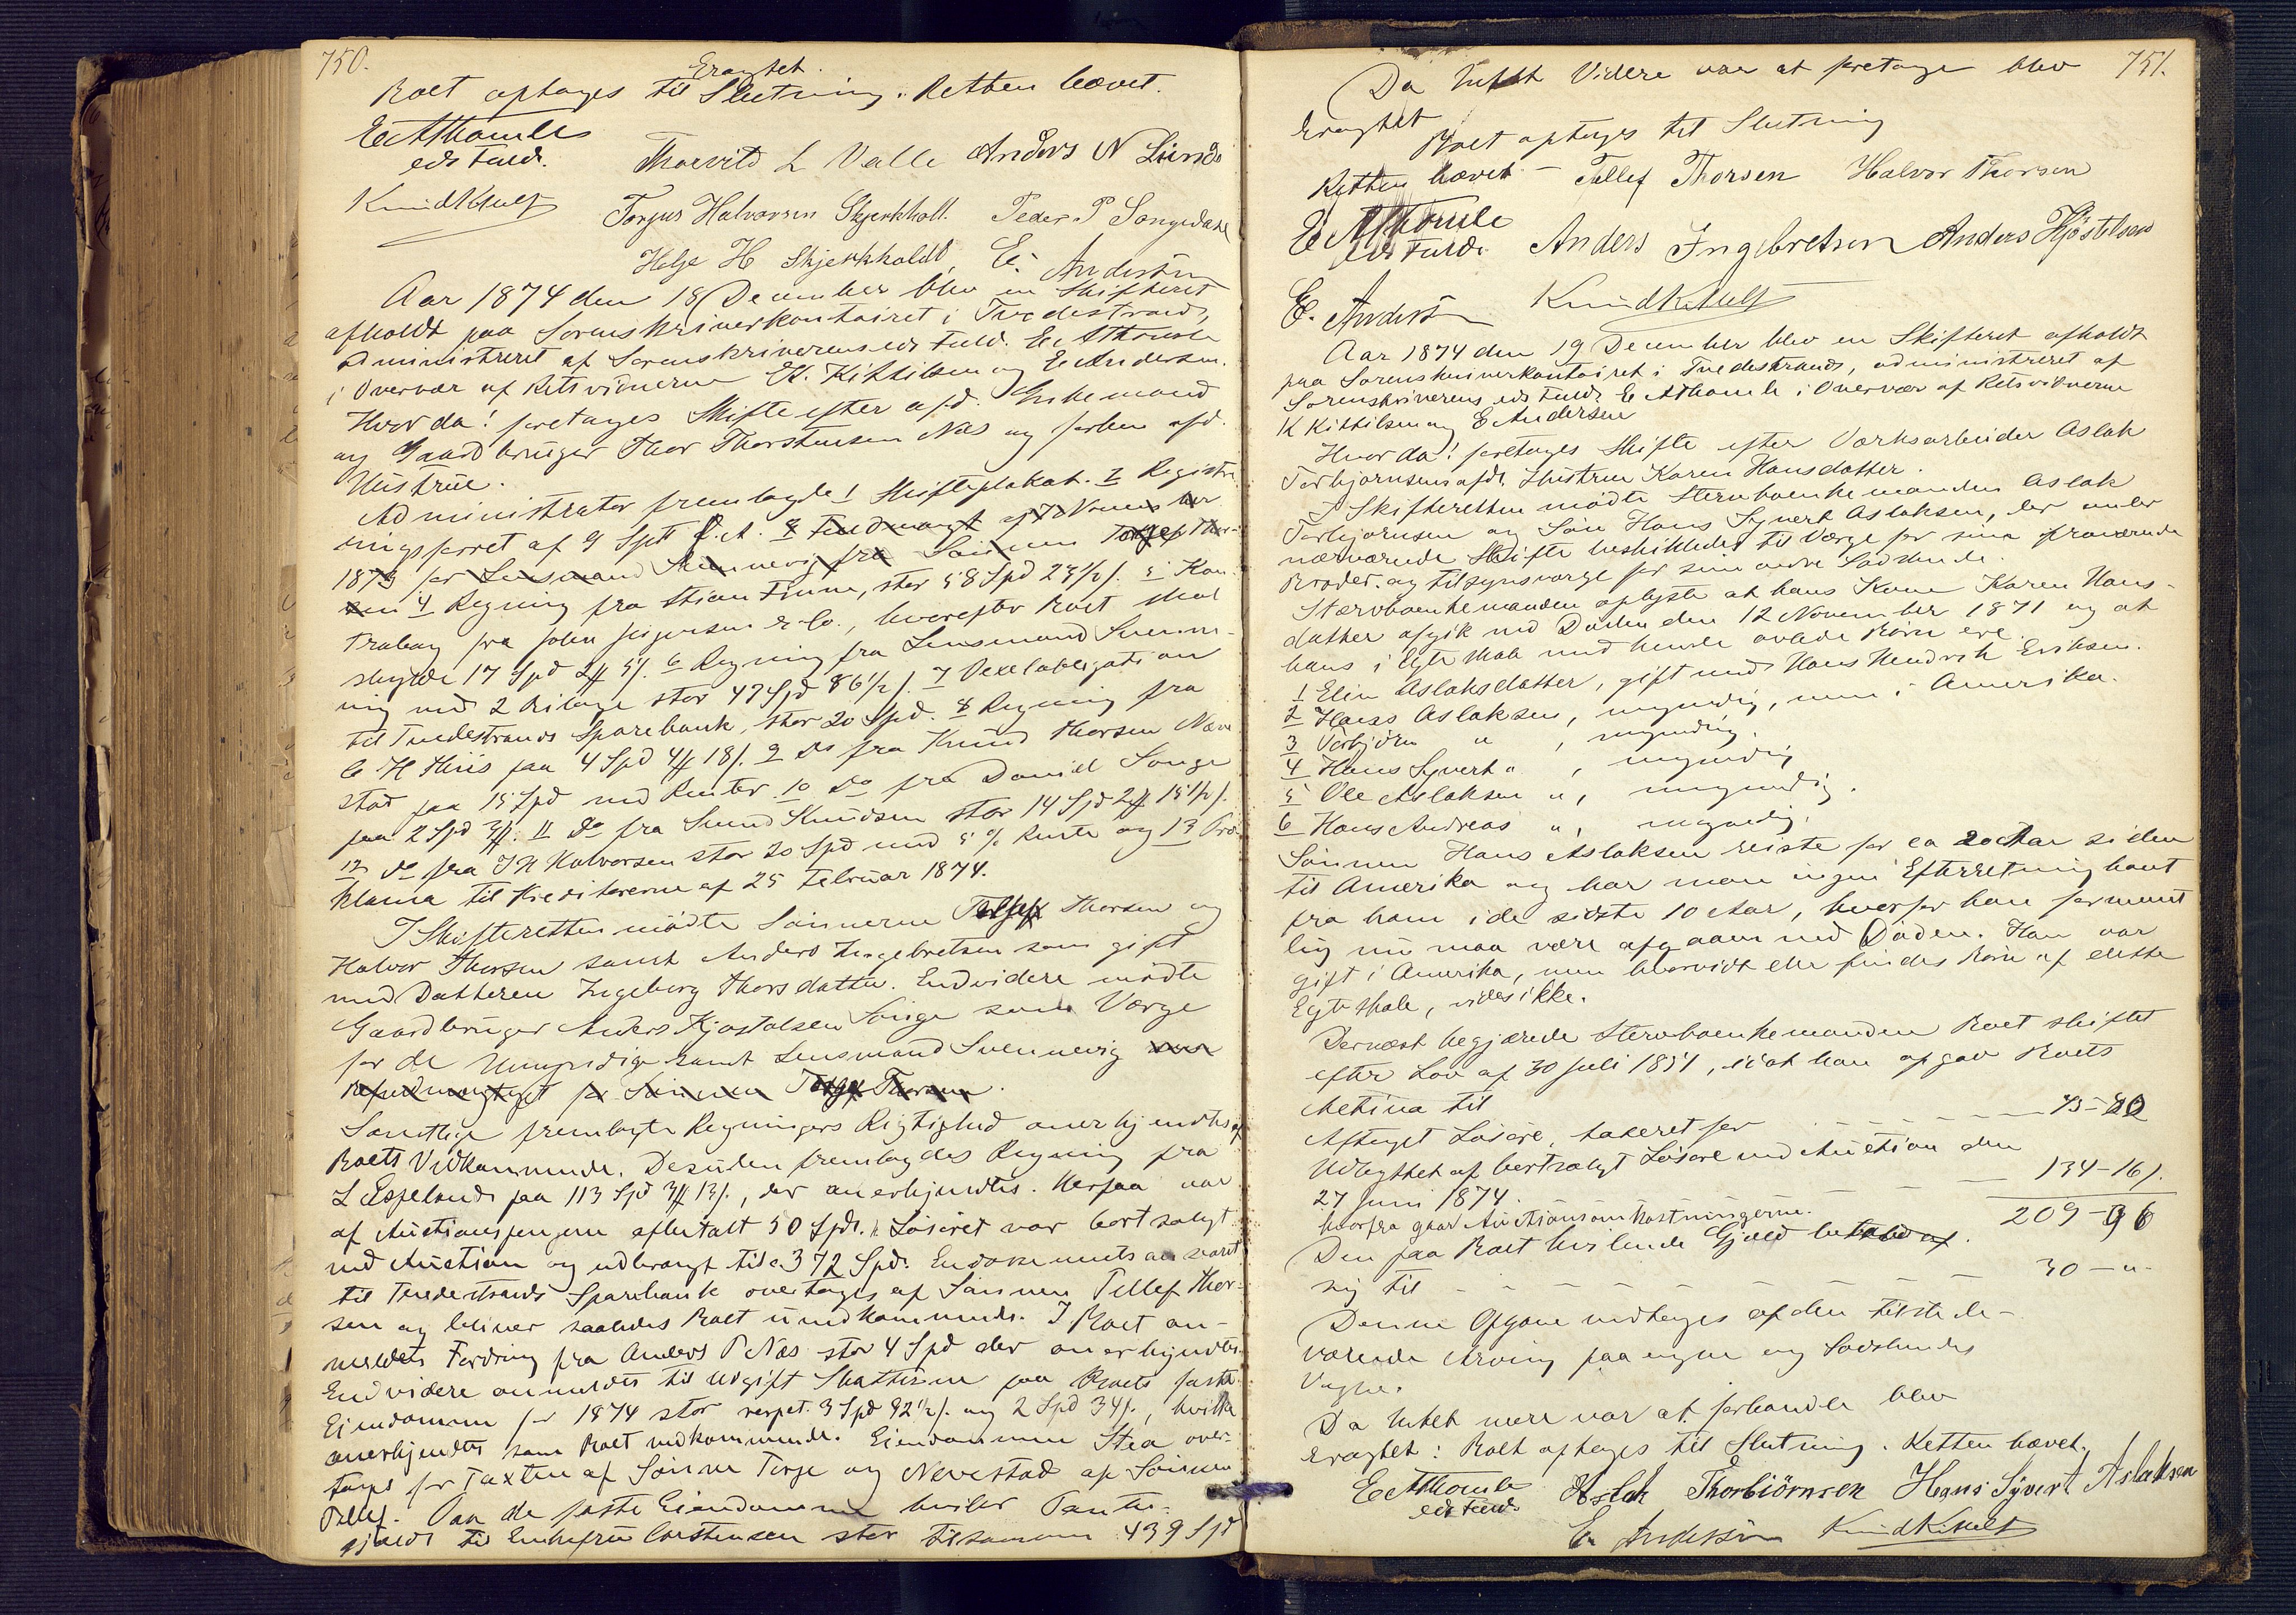 750.
Eragtet.
Boet optages til Slutning. Retten hævet.
E Athomle
eds Fuldm.
Thorvild L Valle Anders N Lunde
Knud Kittels
Torjus Halvorsen Skjerkholt. Peder P Songedahl
Helge H Skjerkholdt, E. Andersen
Aar 1874 den 18 December blev en Skifteret
afholdt paa Sorenskriverkontoiret i Tvedestrand,
administreret af Sorenskriverens eds Fuld. E. Athomle
i Overvær af Retsvidnerne K. Kittilsen og E. Andersen.
Hvor da! foretages Skifte efter afd. Enkemand
og Gaardbruger Thor Thorstensen Næs og forhen afd.
Hustrue.
Administrator fremlagde 1 Skifteplakat. 2 Registre-
ringsforret. af 9 Sptb d. A. 3 Fuldmagt af 7 Novem ber
1873 for Lensmand Svennevig fra Sönnen Torgef Thor-
sen 4 Regning fra Stian Finne, stor 58 Spd 23½ s. 5 Kon-
trabog fra John Jörgensen & Co., hvorefter Boet skal
skylde 17 Spd 2 # 5 s. 6 Regning fra Lensmand Svenne-
vig med 2 Bilage stor 47 Spd 86½ s. 7 Vexelobligation
til Tvedestrands Sparebank, stor 20 Spd. 8 Regning fra
C H Huis paa 4 Spd 4 # 18 s. 9 Do fra Knud Thorsen Neve-
stad paa 15 Spd med Renter 10 Do fra Daniel Songe
paa 2 Spd 3 #. 11 Do fra Svend Knudsen stor 14 Spd 2 # 15½ s.
12 Do fra J N Halvorsen stor 20 Spd med 5 % Rente og 13 Pro-
klama til Kreditorerne af 25 Februar 1874.
I Skifteretten mödte Sönnerne Tellef Thorsen og
Halvor Thorsen samt Anders Ingebretsen som gift
med Datteren Ingeborg Thorsdatter. Endvidere mödte
Gaardbruger Anders Kjöstolsen Songe som Værge
for de Umyndige samt Lensmand Svennevig som
Befuldmægtiget for Sönnen Torgef Thorsen.
Samtlige fremlagte Regningers Rigtighed anerkjendtes af
Boets Vedkommende. Desuden fremlagdes Regning fra
L Espeland paa 113 Spd 3 # 13 s., der anerkjendtes. Herpaa var
af Auctionspengene afbetalt 50 Spd. Lösöret var bortsolgt
ved Auction og udbragt til 372 Spd. Endossementsansvaret
til Tvedestrands Sparebank overtages af Sönnen Tellef Thor-
sen og bliver saaledes Boet uvedkommende. I Boet an-
meldtes Fordring fra Anders P Næs stor 4 Spd der anerkjendtes.
Endvidere anmeldtes til Udgift Skatterne paa Boets faste
Eiendomme for 1874 stor respet. 3 Spd 92½ s. og 2 Spd 34 s., hvilke
anerkjendtes som Boet vedkommende. Eiendommen Stea over-
tages for Taxten af Sönnen Torge og Nevestad af Sönnen
Tellef. Paa de faste Eiendomme hviler Pante-
gjæld til Enkefru Carstensen stor tilsammen 439 Spd
751.
Da Intet Videre var at foretage blev
Eragtet
Boet optages til Slutning
Retten hævet - Tellef Thorsen Halvor Thorsen
E Athomle
eds Fuldm. Anders Ingebretsen Anders Kjöstelsen
E. Andersen Knud Kittels
Aar 1874 den 19 December blev en Skifteret afholdt
paa Sorenskriverkontoiret i Tvedestrand, administreret af
Sorenskriverens eds Fuld. E Athomle i Overvær af Retsvidnerne
K Kittilsen og E Andersen
Hvor da! foretages Skifte efter Værksarbeider Aslak
Torbjörnsens afd. Hustrue Karen Hansdatter.
I Skifteretten mödte Stervboenkemanden Aslak
Torbjörnsen og Sön Hans Syvert Aslaksen, der under
nærværende Skifte beskikkedes til Værge for sine fraværende
Bröder og tilsynsværge for sine andre Södskende.
Stervboenkemanden oplyste at hans Kone Karen Hans-
datter afgik ved Döden den 12 November 1871 og at
hans i Egteskab med hende avlede Börn ere
1 Elin Aslaksdatter, gift med Hans Hendrik Eriksen.
2 Hans Aslaksen, myndig, nu i Amerika.
3 Torbjörn " , myndig.
4 Hans Syvert " , myndig
5 Ole Aslaksen ", myndig.
6 Hans Andreas ", myndig.
Sönnen Hans Aslaksen reiste for ca 20 Aar siden
til Amerika og har man ingen Efterretning havt
fra ham i de sidste 10 Aar, hvorfor han forment-
lig nu maa være afgaaen ved Döden. Han var
gift i Amerika, men hvorvidt der findes Börn af dette
Egteskab, vides ikke.
Dernæst begjærede Stervboenkemanden Boet skiftet
efter Lov af 30 Juli 1851, idet han opgav Boets
Activa til
Aftaget Lösöre, taxeret for - - - 75-80
Udbyttet af bortsolgt Lösöre ved Auction den
27 Juni 1874. - - - 134-16 s.
hvorfra gaar Auctionsomkostningerne. 209-96
Den paa Boet hvilende Gjæld betalte af
sig til - - - - - - - - 30-"-
Denne Opgave vedtages af den tilstede-
værende Arving paa egne og Södskendes
Vegne.
Da Intet mere var at forhandle blev
eragtet: Boet optages til Slutning. Retten hævet.
E Athomle Aslak Thorbiörnsen Hans Syvert Aslaksen
eds Fuld.
E. Andersen Knud Kittels